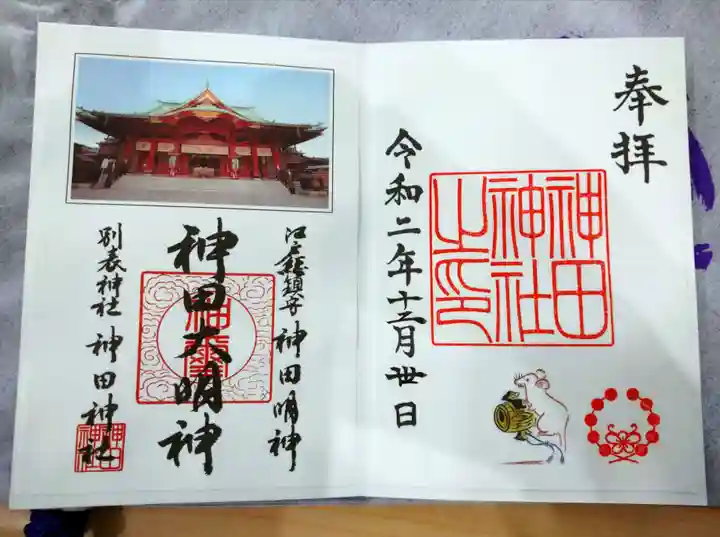 奉拝
神田
神社
之印
令和二年十二月丗日
江戸総鎮守 神田明神
神田大明神
別表神社 神田神社
神田
神社